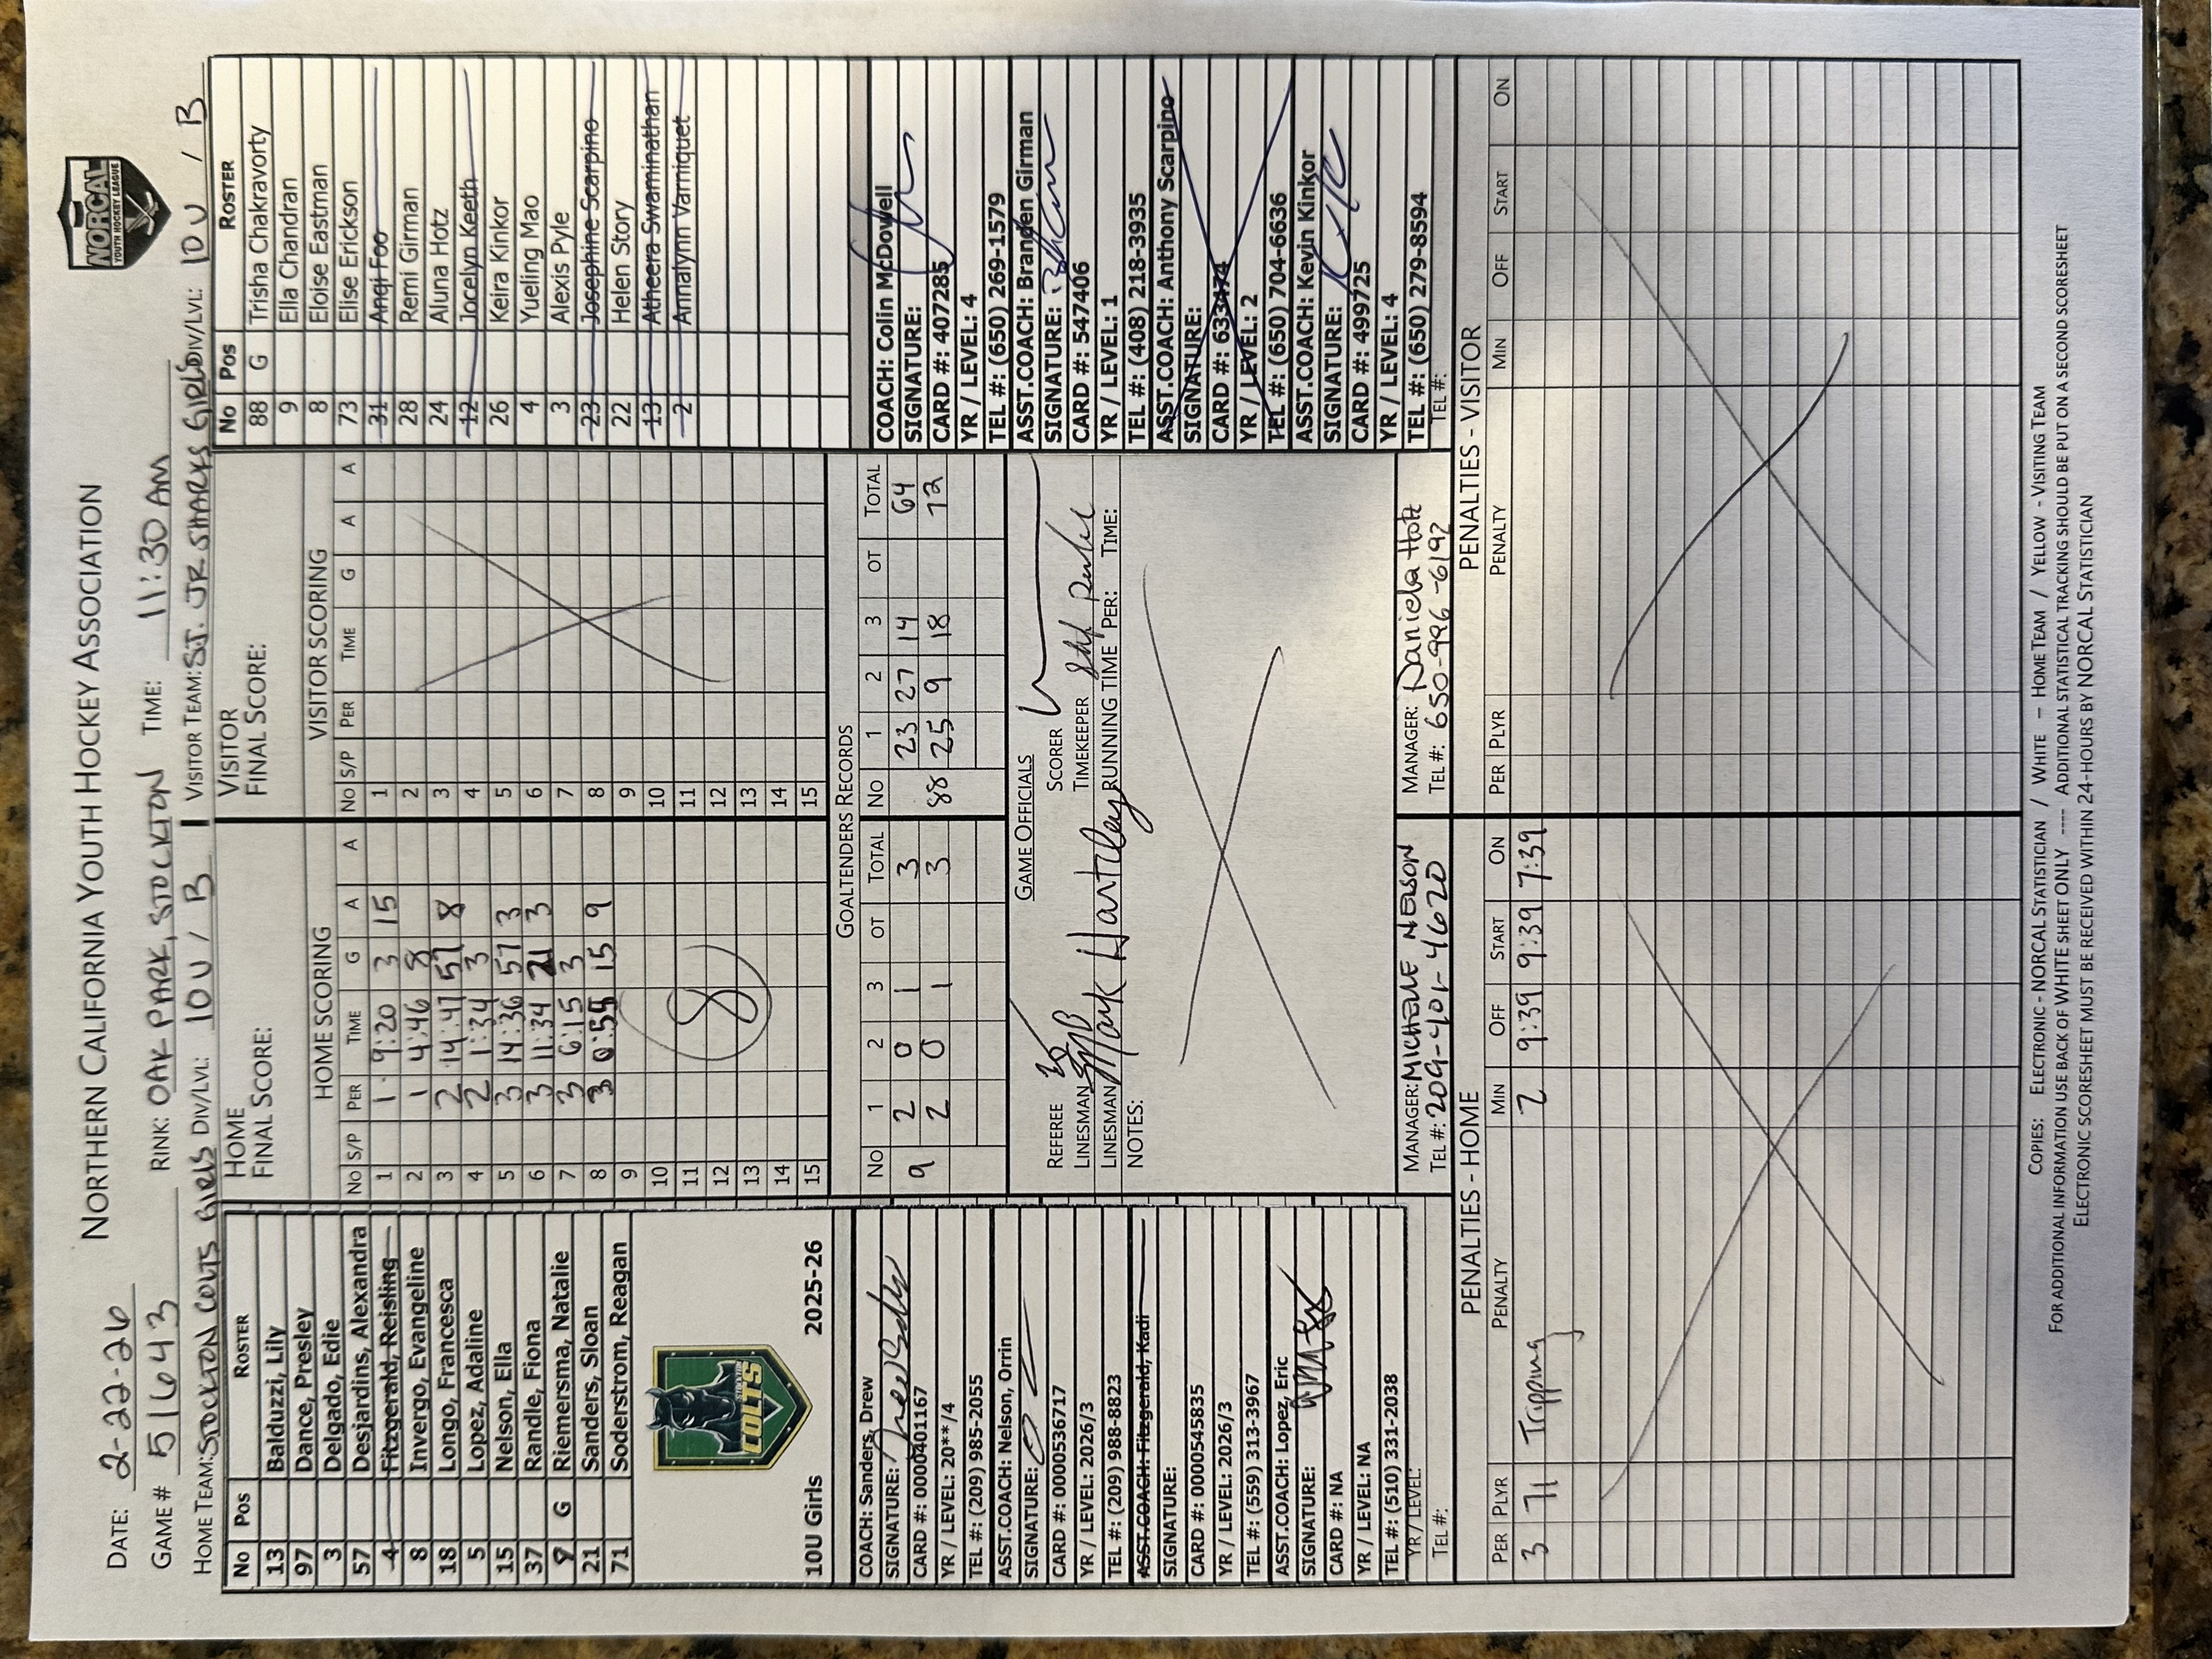 NORTHERN CALIFORNIA YOUTH HOCKEY ASSOCIATION
NORCAL
YOUTH HOCKEY LEAGUE
DATE: 2-22-26
GAME # 51643 RINK: OAK PARK, STOCKTON TIME: 11:30 AM
HOME TEAM: STOCKTON COLTS GIRLS DIV/LVL: 10U / B VISITOR TEAM: SJ. JR. SHARKS GIRLS DIV/LVL: 10U / B
No Pos ROSTER
13 Balduzzi, Lily
97 Dance, Presley
3 Delgado, Edie
57 Desjardins, Alexandra
4 Fitzgerald, Reisling
8 Invergo, Evangeline
18 Longo, Francesca
5 Lopez, Adaline
15 Nelson, Ella
37 Randle, Fiona
9 G Riemersma, Natalie
21 Sanders, Sloan
71 Soderstrom, Reagan
STOCKTON
COLTS
10U Girls 2025-26
HOME
FINAL SCORE:
HOME SCORING
No S/P PER TIME G A A
1 1 9:20 3 15
2 1 4:46 8
3 2 14:47 57 8
4 2 1:34 3
5 3 14:36 57 3
6 3 11:34 21 3
7 3 6:15 3
8 3 0:54 15 9
9
10
11
12
13
14
15
8
VISITOR
FINAL SCORE:
VISITOR SCORING
No S/P PER TIME G A A
1
2
3
4
5
6
7
8
9
10
11
12
13
14
15
No Pos ROSTER
88 G Trisha Chakravorty
9 Ella Chandran
8 Eloise Eastman
73 Elise Erickson
31 Anqi Foo
28 Remi Girman
24 Aluna Hotz
12 Jocelyn Keeth
26 Keira Kinkor
4 Yueling Mao
3 Alexis Pyle
23 Josephine Scarpino
22 Helen Story
13 Atheera Swaminathan
2 Annalynn Varniquet
COACH: Sanders, Drew
SIGNATURE:
CARD #: 0000401167
YR / LEVEL: 20**/4
TEL #: (209) 985-2055
ASST.COACH: Nelson, Orrin
SIGNATURE:
CARD #: 0000536717
YR / LEVEL: 2026/3
TEL #: (209) 988-8823
ASST.COACH: Fitzgerald, Kadi
SIGNATURE:
CARD #: 0000545835
YR / LEVEL: 2026/3
TEL #: (559) 313-3967
ASST.COACH: Lopez, Eric
SIGNATURE:
CARD #: NA
YR / LEVEL: NA
TEL #: (510) 331-2038
YR / LEVEL:
TEL #:
GOALTENDERS RECORDS
No 1 2 3 OT TOTAL No 1 2 3 OT TOTAL
9 2 0 1 3 23 27 14 64
2 0 1 3 88 25 9 18 72
GAME OFFICIALS
REFEREE SCORER
LINESMAN TIMEKEEPER
LINESMAN Mark Hartley RUNNING TIME PER: TIME:
NOTES:
MANAGER: MICHELLE NELSON
TEL #: 209-401-4620
MANAGER: Daniela Hotz
TEL #: 650-996-6192
COACH: Colin McDowell
SIGNATURE:
CARD #: 407285
YR / LEVEL: 4
TEL #: (650) 269-1579
ASST.COACH: Branden Girman
SIGNATURE:
CARD #: 547406
YR / LEVEL: 1
TEL #: (408) 218-3935
ASST.COACH: Anthony Scarpino
SIGNATURE:
CARD #: 633474
YR / LEVEL: 2
TEL #: (650) 704-6636
ASST.COACH: Kevin Kinkor
SIGNATURE:
CARD #: 499725
YR / LEVEL: 4
TEL #: (650) 279-8594
TEL #:
PENALTIES - HOME
PER PLYR PENALTY MIN OFF START ON
3 71 Tripping 2 9:39 9:39 7:39
PENALTIES - VISITOR
PER PLYR PENALTY MIN OFF START ON
COPIES: ELECTRONIC - NORCAL STATISTICIAN / WHITE – HOME TEAM / YELLOW - VISITING TEAM
FOR ADDITIONAL INFORMATION USE BACK OF WHITE SHEET ONLY ---- ADDITIONAL STATISTICAL TRACKING SHOULD BE PUT ON A SECOND SCORESHEET
ELECTRONIC SCORESHEET MUST BE RECEIVED WITHIN 24-HOURS BY NORCAL STATISTICIAN